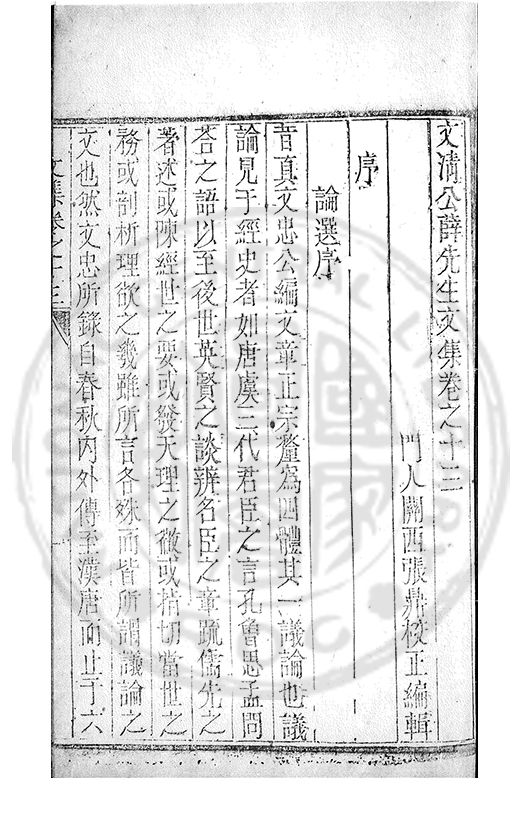 文清公薛先生文集卷之十三
門人關西張鼎校正編輯
序
論選序
昔真文忠公編文章正宗釐為四體其一議論也議
論見于經史者如唐虞三代君臣之言孔魯思孟問
荅之語以至後世英賢之談辨名臣之章疏儒先之
著述或陳經世之要或發天理之微或指切當世之
務或剖析理欲之幾雖所言各殊而皆所謂議論之
文也然文忠所錄自春秋內外傳至漢唐而止于六
文集卷之十三